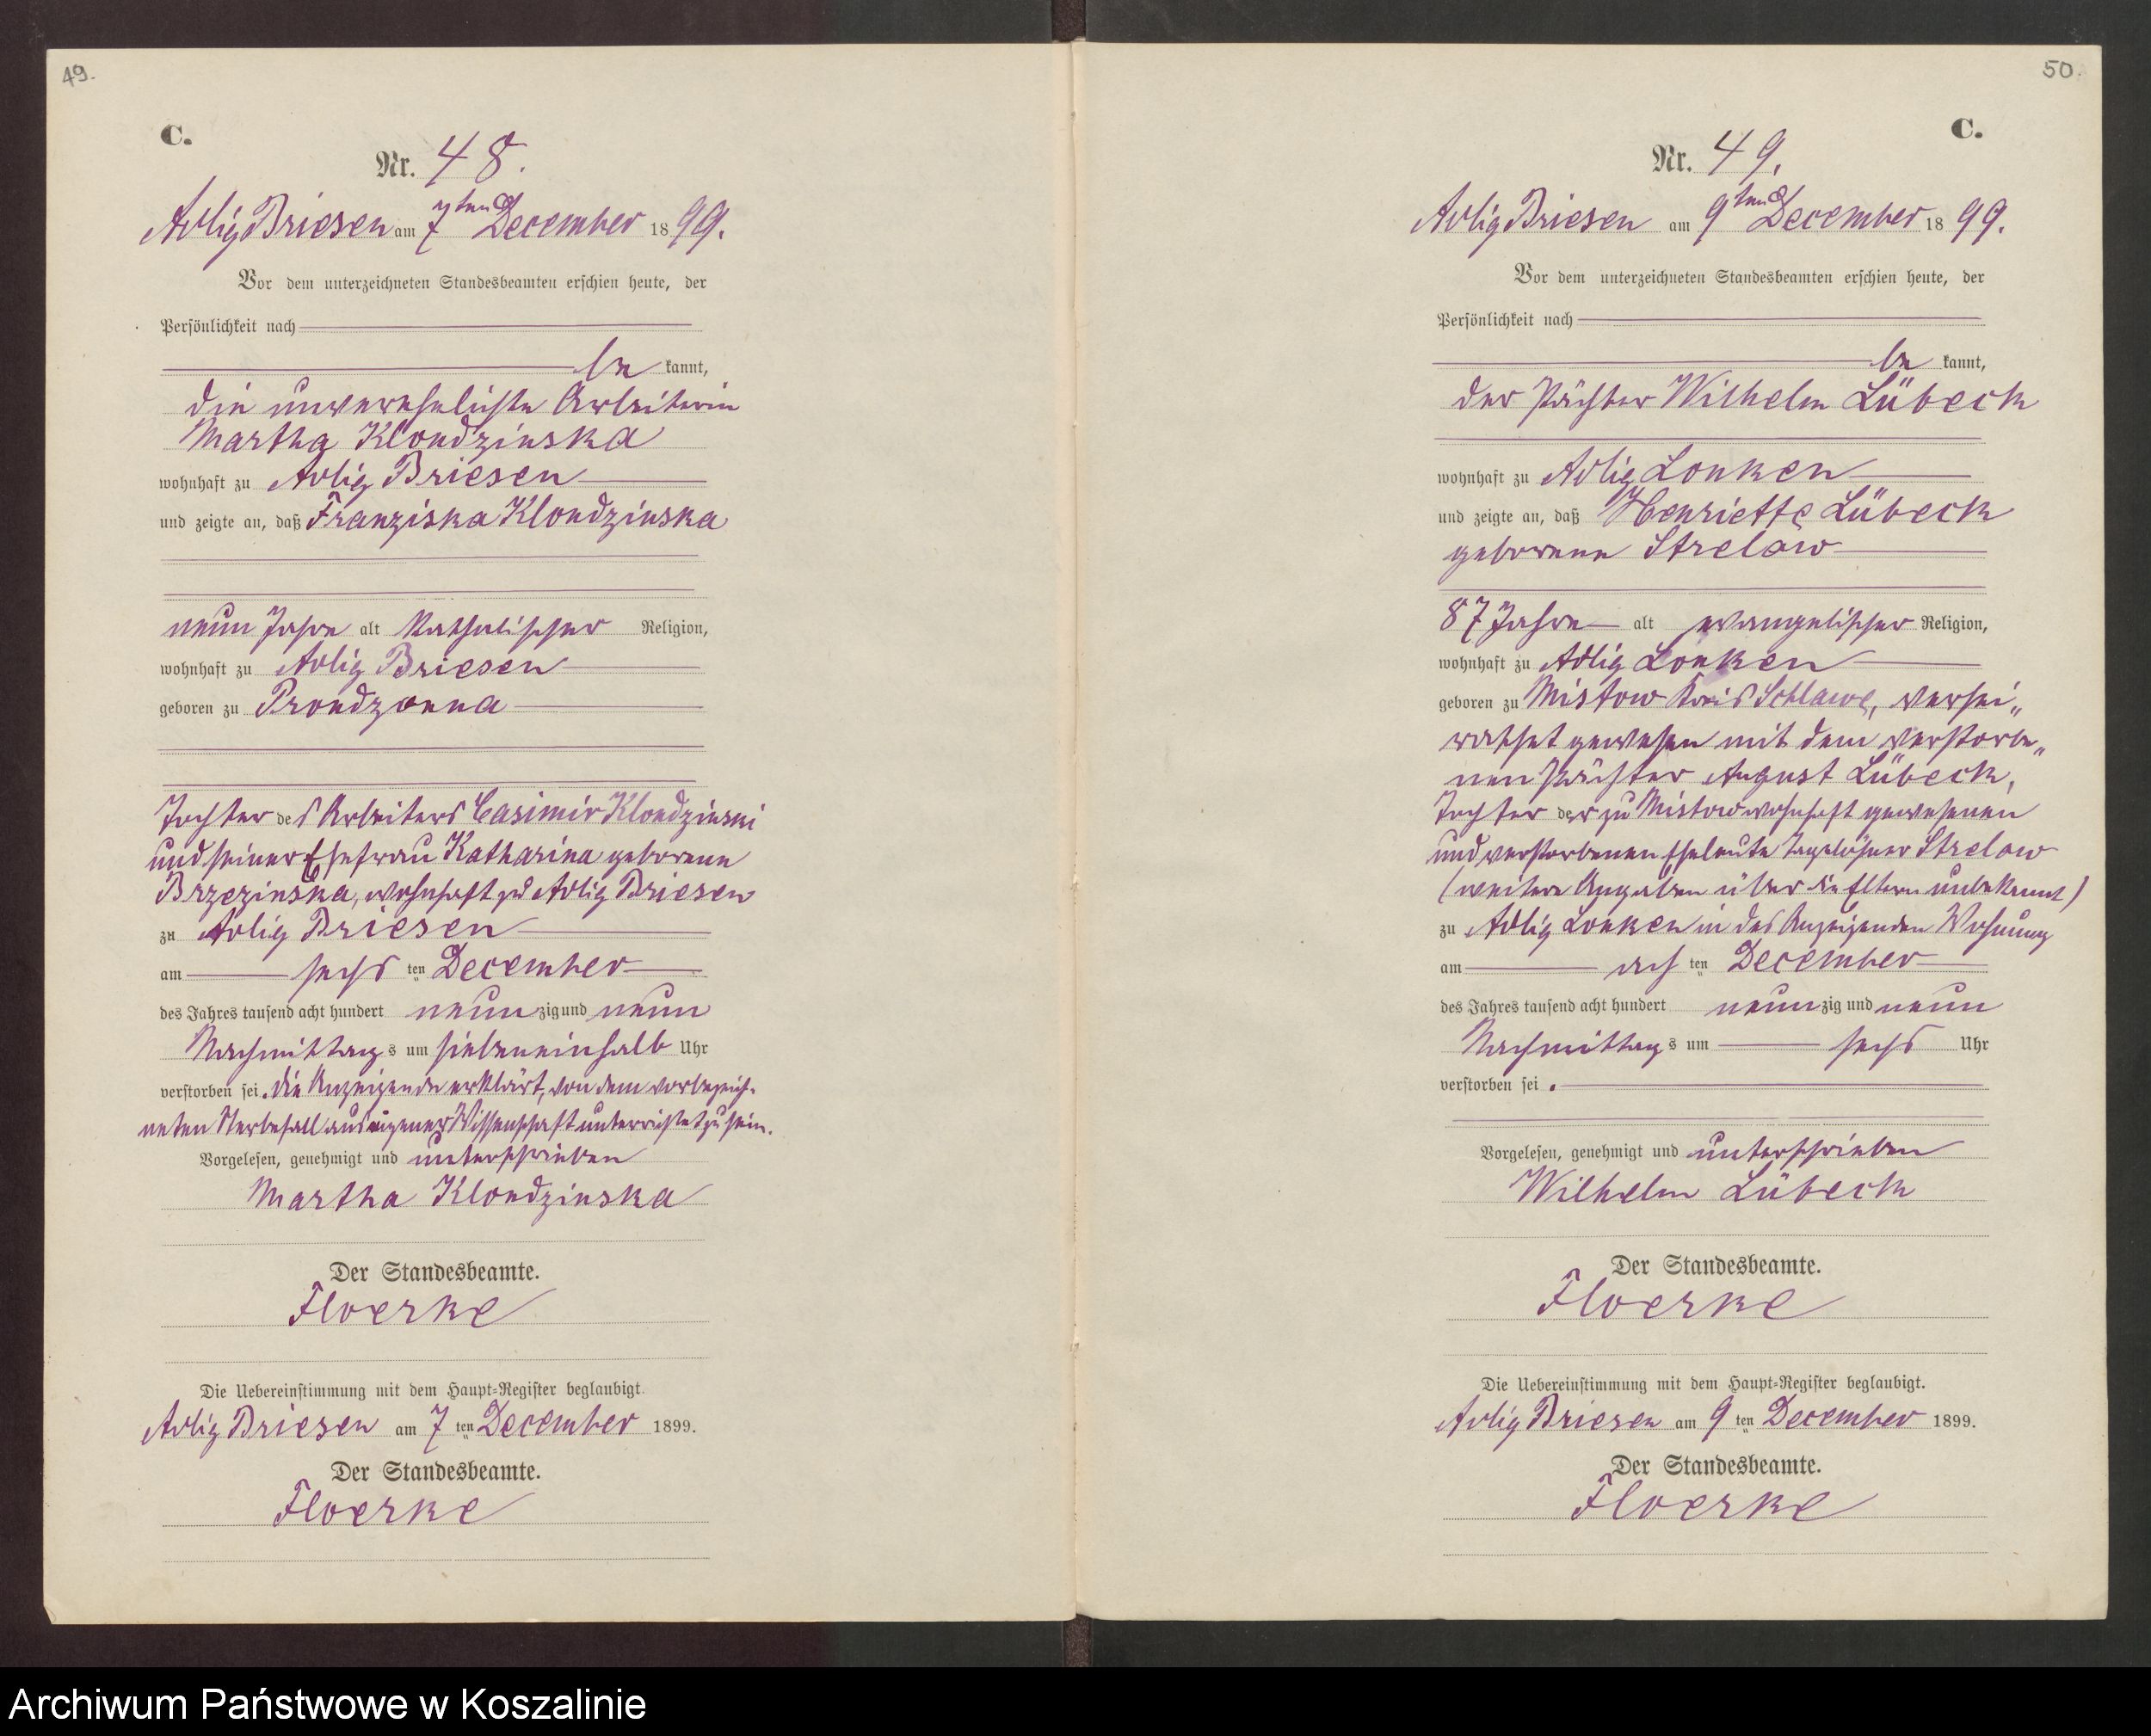 49.
C.
Nr. 48.
Adlig Briesen am 7ten December 1899.
Vor dem unterzeichneten Standesbeamten erschien heute, der
Persönlichkeit nach
be kannt,
die unverehelichte Arbeiterin
Martha Klondzinska
wohnhaft zu Adlig Briesen
und zeigte an, daß Franziska Klondzinska
neun Jahre alt katholischer Religion,
wohnhaft zu Adlig Briesen
geboren zu Prondzonna
Tochter des Arbeiters Casimir Klondzinski
und seiner Ehefrau Katharina geborene
Brzezinska, wohnhaft zu Adlig Briesen
zu Adlig Briesen
am sechsten December
des Jahres tausend acht hundert neunzig und neun
Nachmittags um siebeneinhalb Uhr
verstorben sei. Die Anzeigende erklärt, von dem vorbezeich-
neten Sterbefall aus eigener Wissenschaft unterrichtet zu sein.
Vorgelesen, genehmigt und unterschrieben
Martha Klondzinska
Der Standesbeamte.
Floerke
Die Uebereinstimmung mit dem Haupt-Register beglaubigt.
Adlig Briesen am 7ten December 1899.
Der Standesbeamte.
Floerke
50.
C.
Nr. 49.
Adlig Briesen am 9ten December 1899.
Vor dem unterzeichneten Standesbeamten erschien heute, der
Persönlichkeit nach
be kannt,
der Pächter Wilhelm Lübeck
wohnhaft zu Adlig Lonken
und zeigte an, daß Henriette Lübeck
geborene Strelow
87 Jahre alt evangelischer Religion,
wohnhaft zu Adlig Lonken
geboren zu Mistow Kreis Schlawe, verhei„
rathet gewesen mit dem verstorbe„
nen Pächter August Lübeck,
Tochter der zu Mistow wohnhaft gewesenen
und verstorbenen Eheleute Tagelöhner Strelow
(weitere Angaben über die Eltern unbekannt)
zu Adlig Lonken in des Anzeigenden Wohnung
am achten December
des Jahres tausend acht hundert neunzig und neun
Nachmittags um sechs Uhr
verstorben sei.
Vorgelesen, genehmigt und unterschrieben
Wilhelm Lübeck
Der Standesbeamte.
Floerke
Die Uebereinstimmung mit dem Haupt-Register beglaubigt.
Adlig Briesen am 9ten December 1899.
Der Standesbeamte.
Floerke
Archiwum Państwowe w Koszalinie